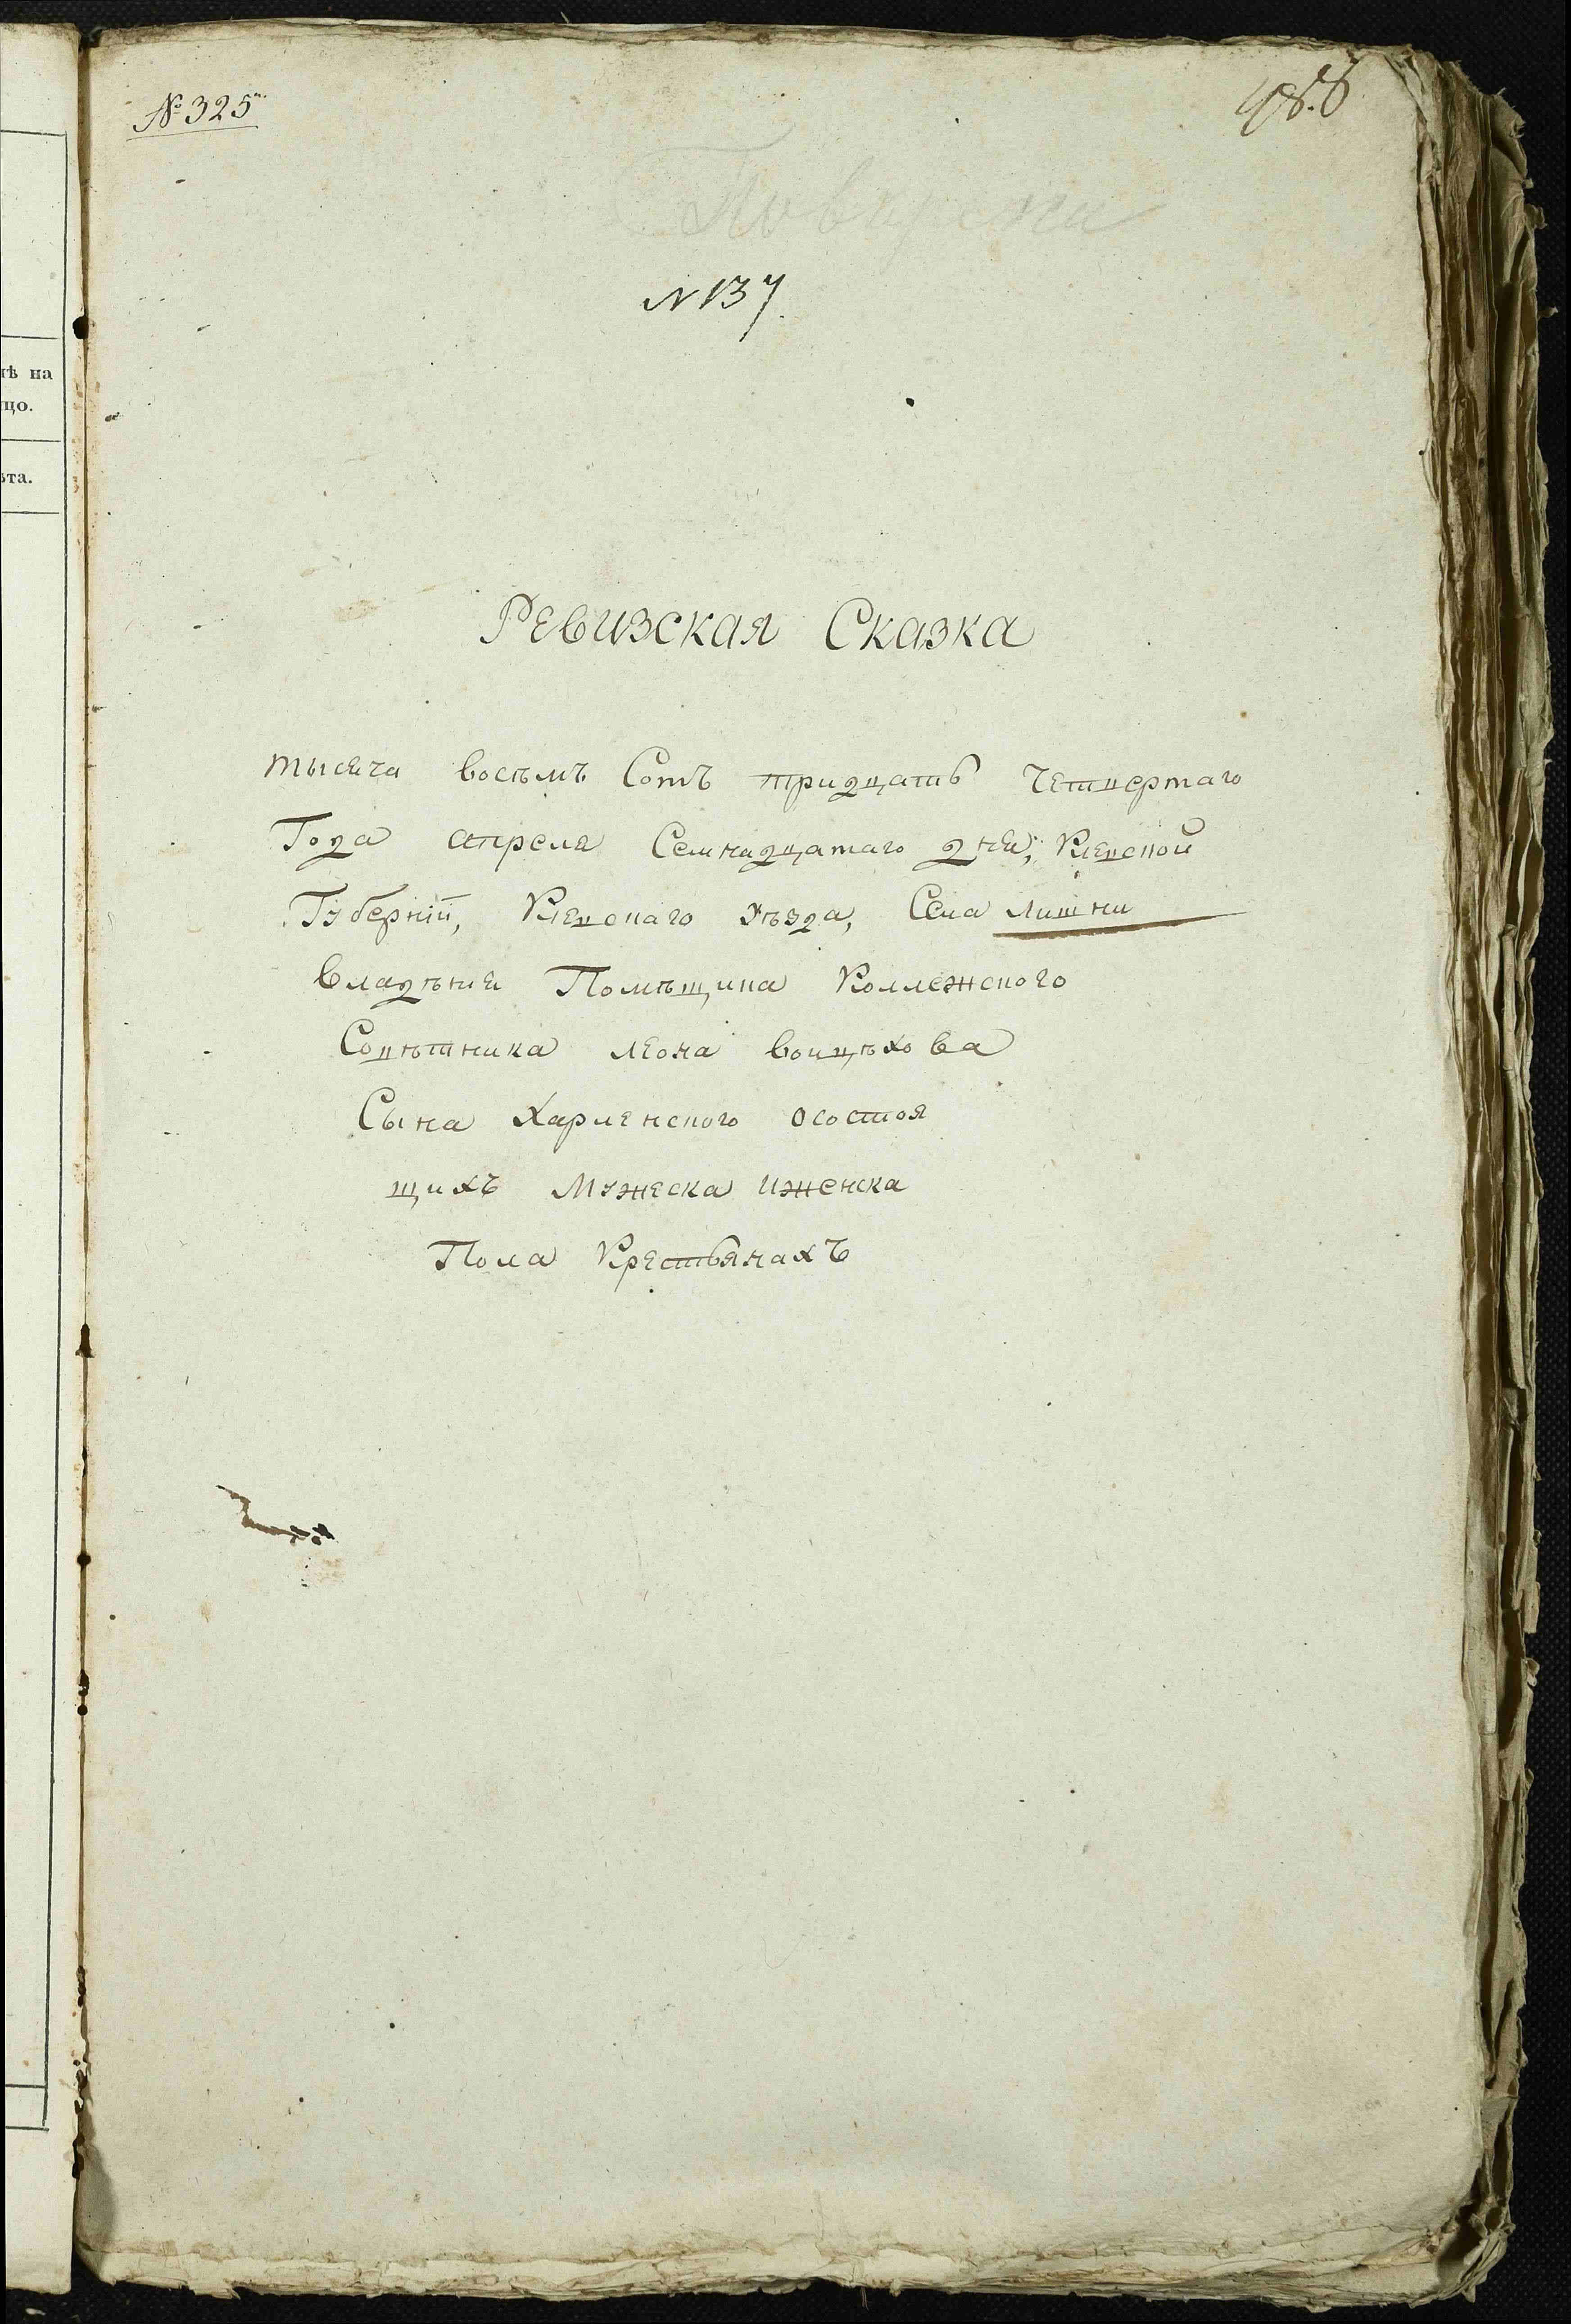 № 325
N 137.
ѣ на
цо.
ѣта.
Ревизская Сказка
тысяча восѣмъ Сотъ тридцать Четвертаго
Года апреля Семнадцатаго дня, Киевской
Губерніи, Киевскаго уѣзда, Села Литни
владѣния Помѣщика Коллежского
Совѣтника леона воицѣхова
Сына Харленского осостоя
щихъ Мужеска иженска
Пола Крестьянахъ